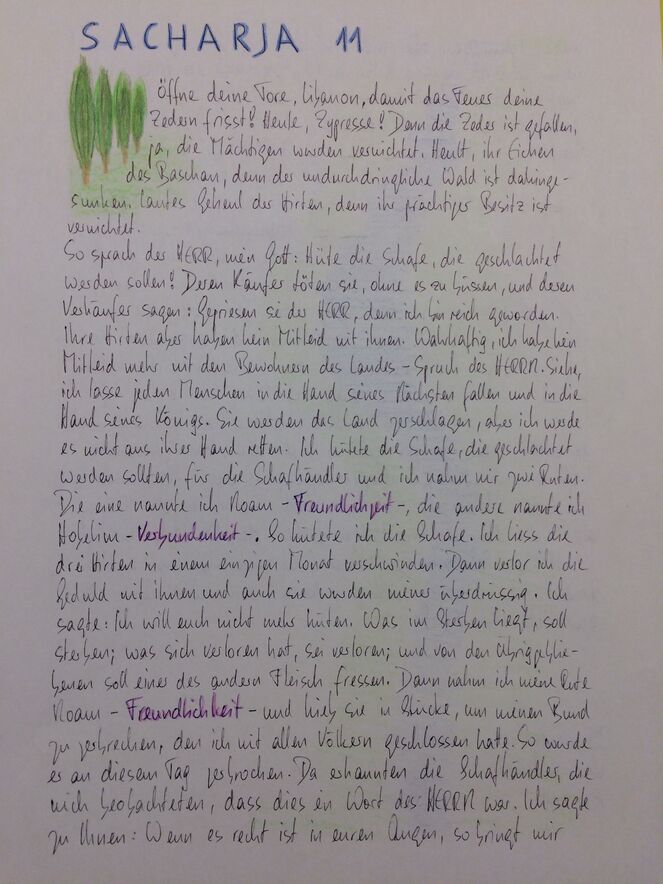 SACHARJA 11
Öffne deine Tore, Libanon, damit das Feuer deine
Zedern frisst! Heule, Zypresse! Denn die Zeder ist gefallen,
ja, die Mächtigen wurden vernichtet. Heult, ihr Eichen
des Baschan, denn der undurchdringliche Wald ist dahinge-
sunken. Lautes Geheul der Hirten, denn ihr prächtiger Besitz ist
vernichtet.
So sprach der HERR, mein Gott: Hüte die Schafe, die geschlachtet
werden sollen! Deren Käufer töten sie, ohne es zu büssen, und deren
Verkäufer sagen: Gepriesen sei der HERR, denn ich bin reich geworden.
Ihre Hirten aber haben kein Mitleid mit ihnen. Wahrhaftig, ich habe kein
Mitleid mehr mit den Bewohnern des Landes - Spruch des HERRN. Siehe,
ich lasse jeden Menschen in die Hand seines Nächsten fallen und in die
Hand seines Königs. Sie werden das Land zerschlagen, aber ich werde
es nicht aus ihrer Hand retten. Ich hütete die Schafe, die geschlachtet
werden sollten, für die Schafhändler und ich nahm mir zwei Ruten.
Die eine nannte ich Noam - Freundlichkeit -, die andere nannte ich
Hobelim - Verbundenheit -. So hütete ich die Schafe. Ich liess die
drei Hirten in einem einzigen Monat verschwinden. Dann verlor ich die
Geduld mit ihnen und auch sie wurden meiner überdrüssig. Ich
sagte: Ich will euch nicht mehr hüten. Was im Sterben liegt, soll
sterben; was sich verloren hat, sei verloren; und von den Übriggeblie-
benen soll einer des andern Fleisch fressen. Dann nahm ich meine Rute
Noam - Freundlichkeit - und hieb sie in Stücke, um meinen Bund
zu zerbrechen, den ich mit allen Völkern geschlossen hatte. So wurde
er an diesem Tag zerbrochen. Da erkannten die Schafhändler, die
mich beobachteten, dass dies ein Wort des HERRN war. Ich sagte
zu Ihnen: Wenn es recht ist in euren Augen, so bringt mir